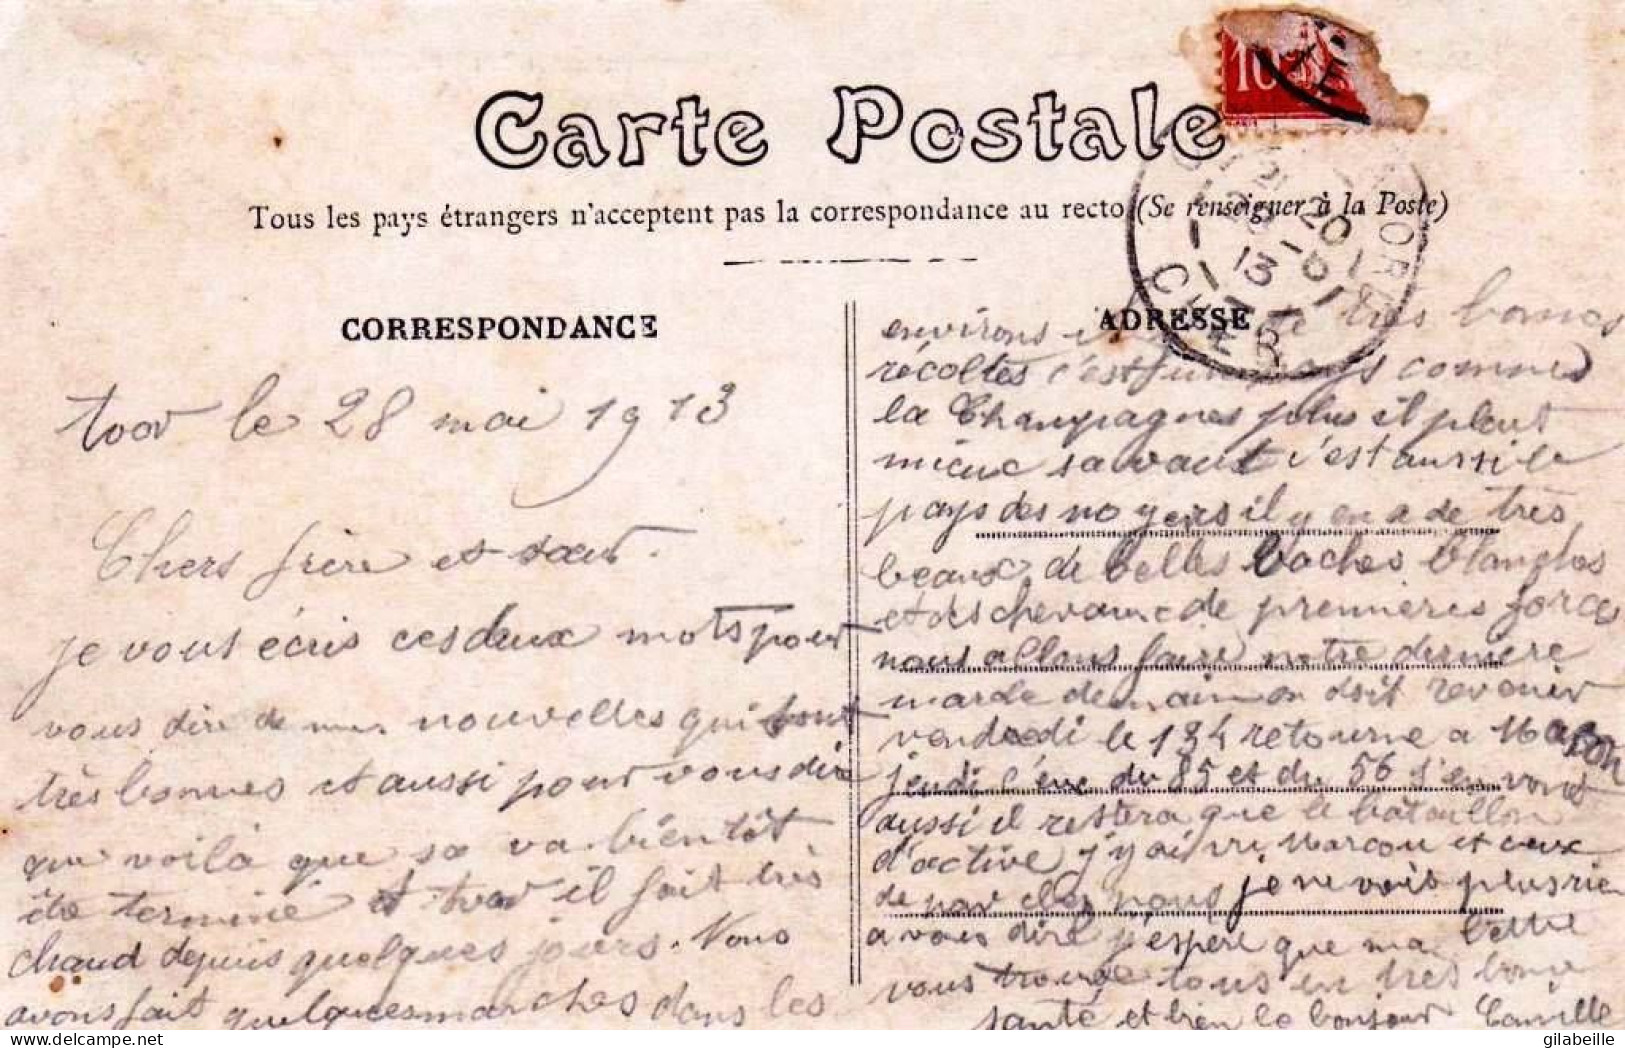 10
Carte Postale
Tous les pays étrangers n'acceptent pas la correspondance au recto (Se renseigner à la Poste)
20
13
CHER
CORRESPONDANCE
ADRESSE
le 28 mai 1913
Chers frère et sœur.
je vous écris ces deux mots pour
vous dire de mes nouvelles qui sont
très bonnes et aussi pour vous dire
que voilà que sa va bientôt
être terminé et il fait très
chaud depuis quelques jours. Nous
avons fait quelques marches dans les
environs de très bonnes
récoltes c'est un pays comme
la Champagnes plus il pleut
mieux sa vaut c'est aussi le
pays des noyers il y en a de très
beaux de belles vaches blanches
et des chevaux de premières forces
nous allons faire notre dernière
marde demain on doit revenir
vendredi le 134 retourne a Macon
jeudi ceux du 85 et du 56 s'en vont
aussi il restera que le bataillon
d'active j'y ai vu Marcou et ceux
de par chez nous je ne vois plus rien
a vous dire j'espère que ma lettre
vous trouve tous en très bonne
santé et bien le bonjour Camille
gilabeille